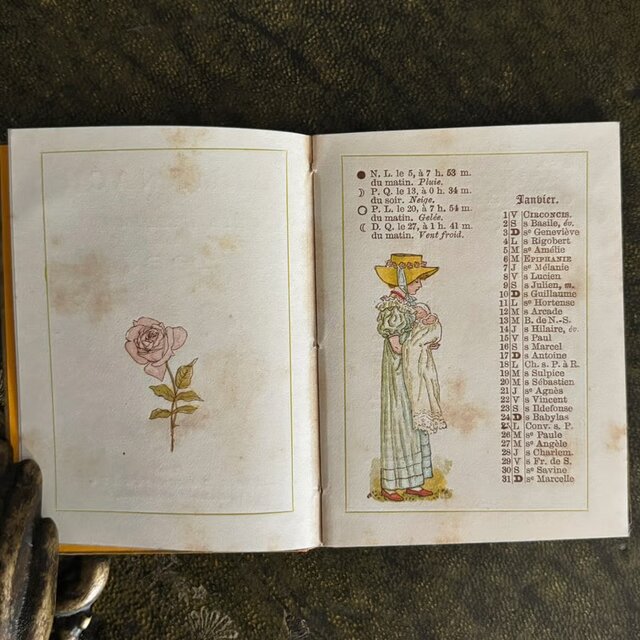 N. L. le 5, à 7 h. 53 m.
du matin. Pluie.
P. Q. le 13, à 0 h. 34 m.
du soir. Neige.
P. L. le 20, à 7 h. 54 m.
du matin. Gelée.
D. Q. le 27, à 1 h. 41 m.
du matin. Vent froid.
Janvier.
1 V CIRCONCIS.
2 S s Basile, év.
3 D se Geneviève
4 L s Rigobert
5 M se Amélie
6 M EPIPHANIE
7 J se Mélanie
8 V s Lucien
9 S s Julien, m.
10 D s Guillaume
11 L se Hortense
12 M s Arcade
13 M B. de N.-S.
14 J s Hilaire, év.
15 V s Paul
16 S s Marcel
17 D s Antoine
18 L Ch. s. P. à R.
19 M s Sulpice
20 M s Sébastien
21 J se Agnès
22 V s Vincent
23 S s Ildefonse
24 D s Babylas
25 L Conv. s. P.
26 M se Paule
27 M se Angèle
28 J s Charlem.
29 V s Fr. de S.
30 S se Savine
31 D se Marcelle